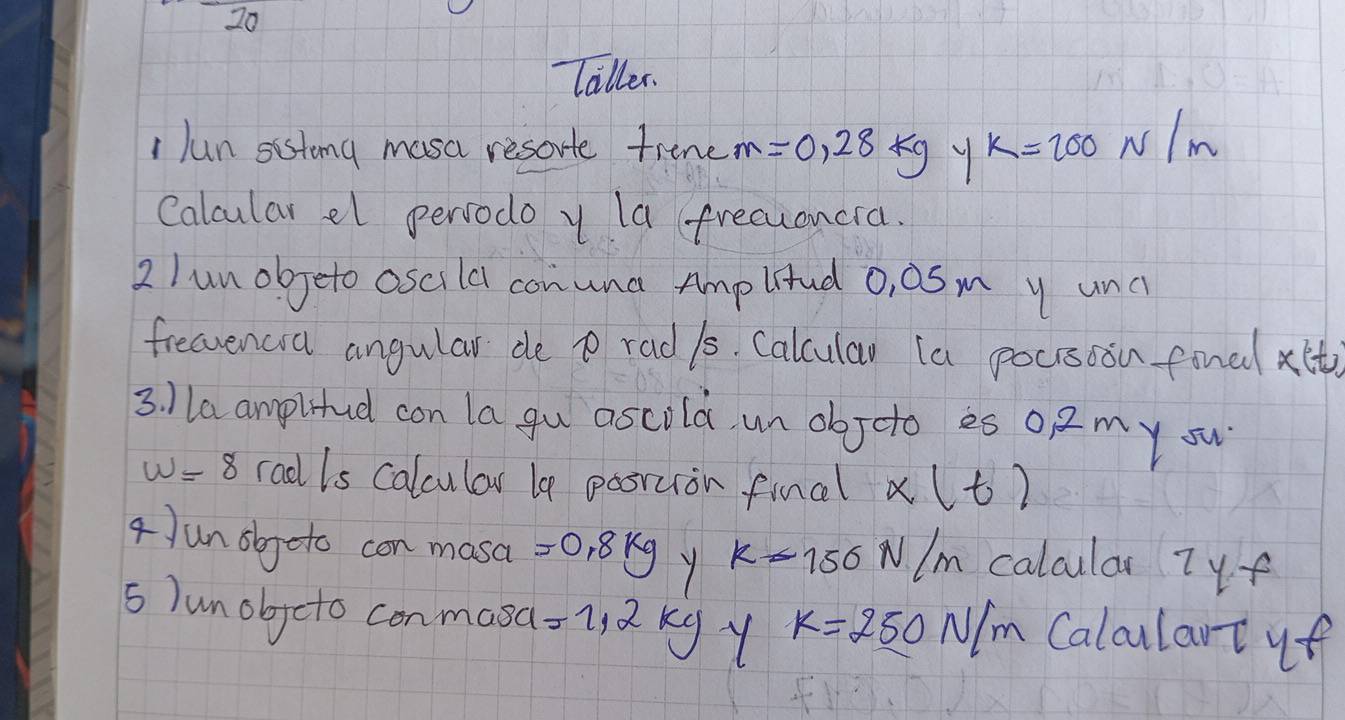 20
Taller.
1) un sistema masa resorte tiene m=0,28 kg y K=200 N/m
Calcular el periodo y la frecuencia.
2) un objeto oscila con una Amplitud 0,05m y una
frecuencia angular de rad/s. Calcular la pocision final x(t)
3.) la amplitud con la qu oscila un objeto es 0,2 m y su
w= 8 rad/s Calcular la posicion final x(t)
4) un objeto con masa =0,8 Kg y K=150 N/m calcular T y f
5) un objeto con masa=1,2 kg y K=250 N/m Calcular T y f